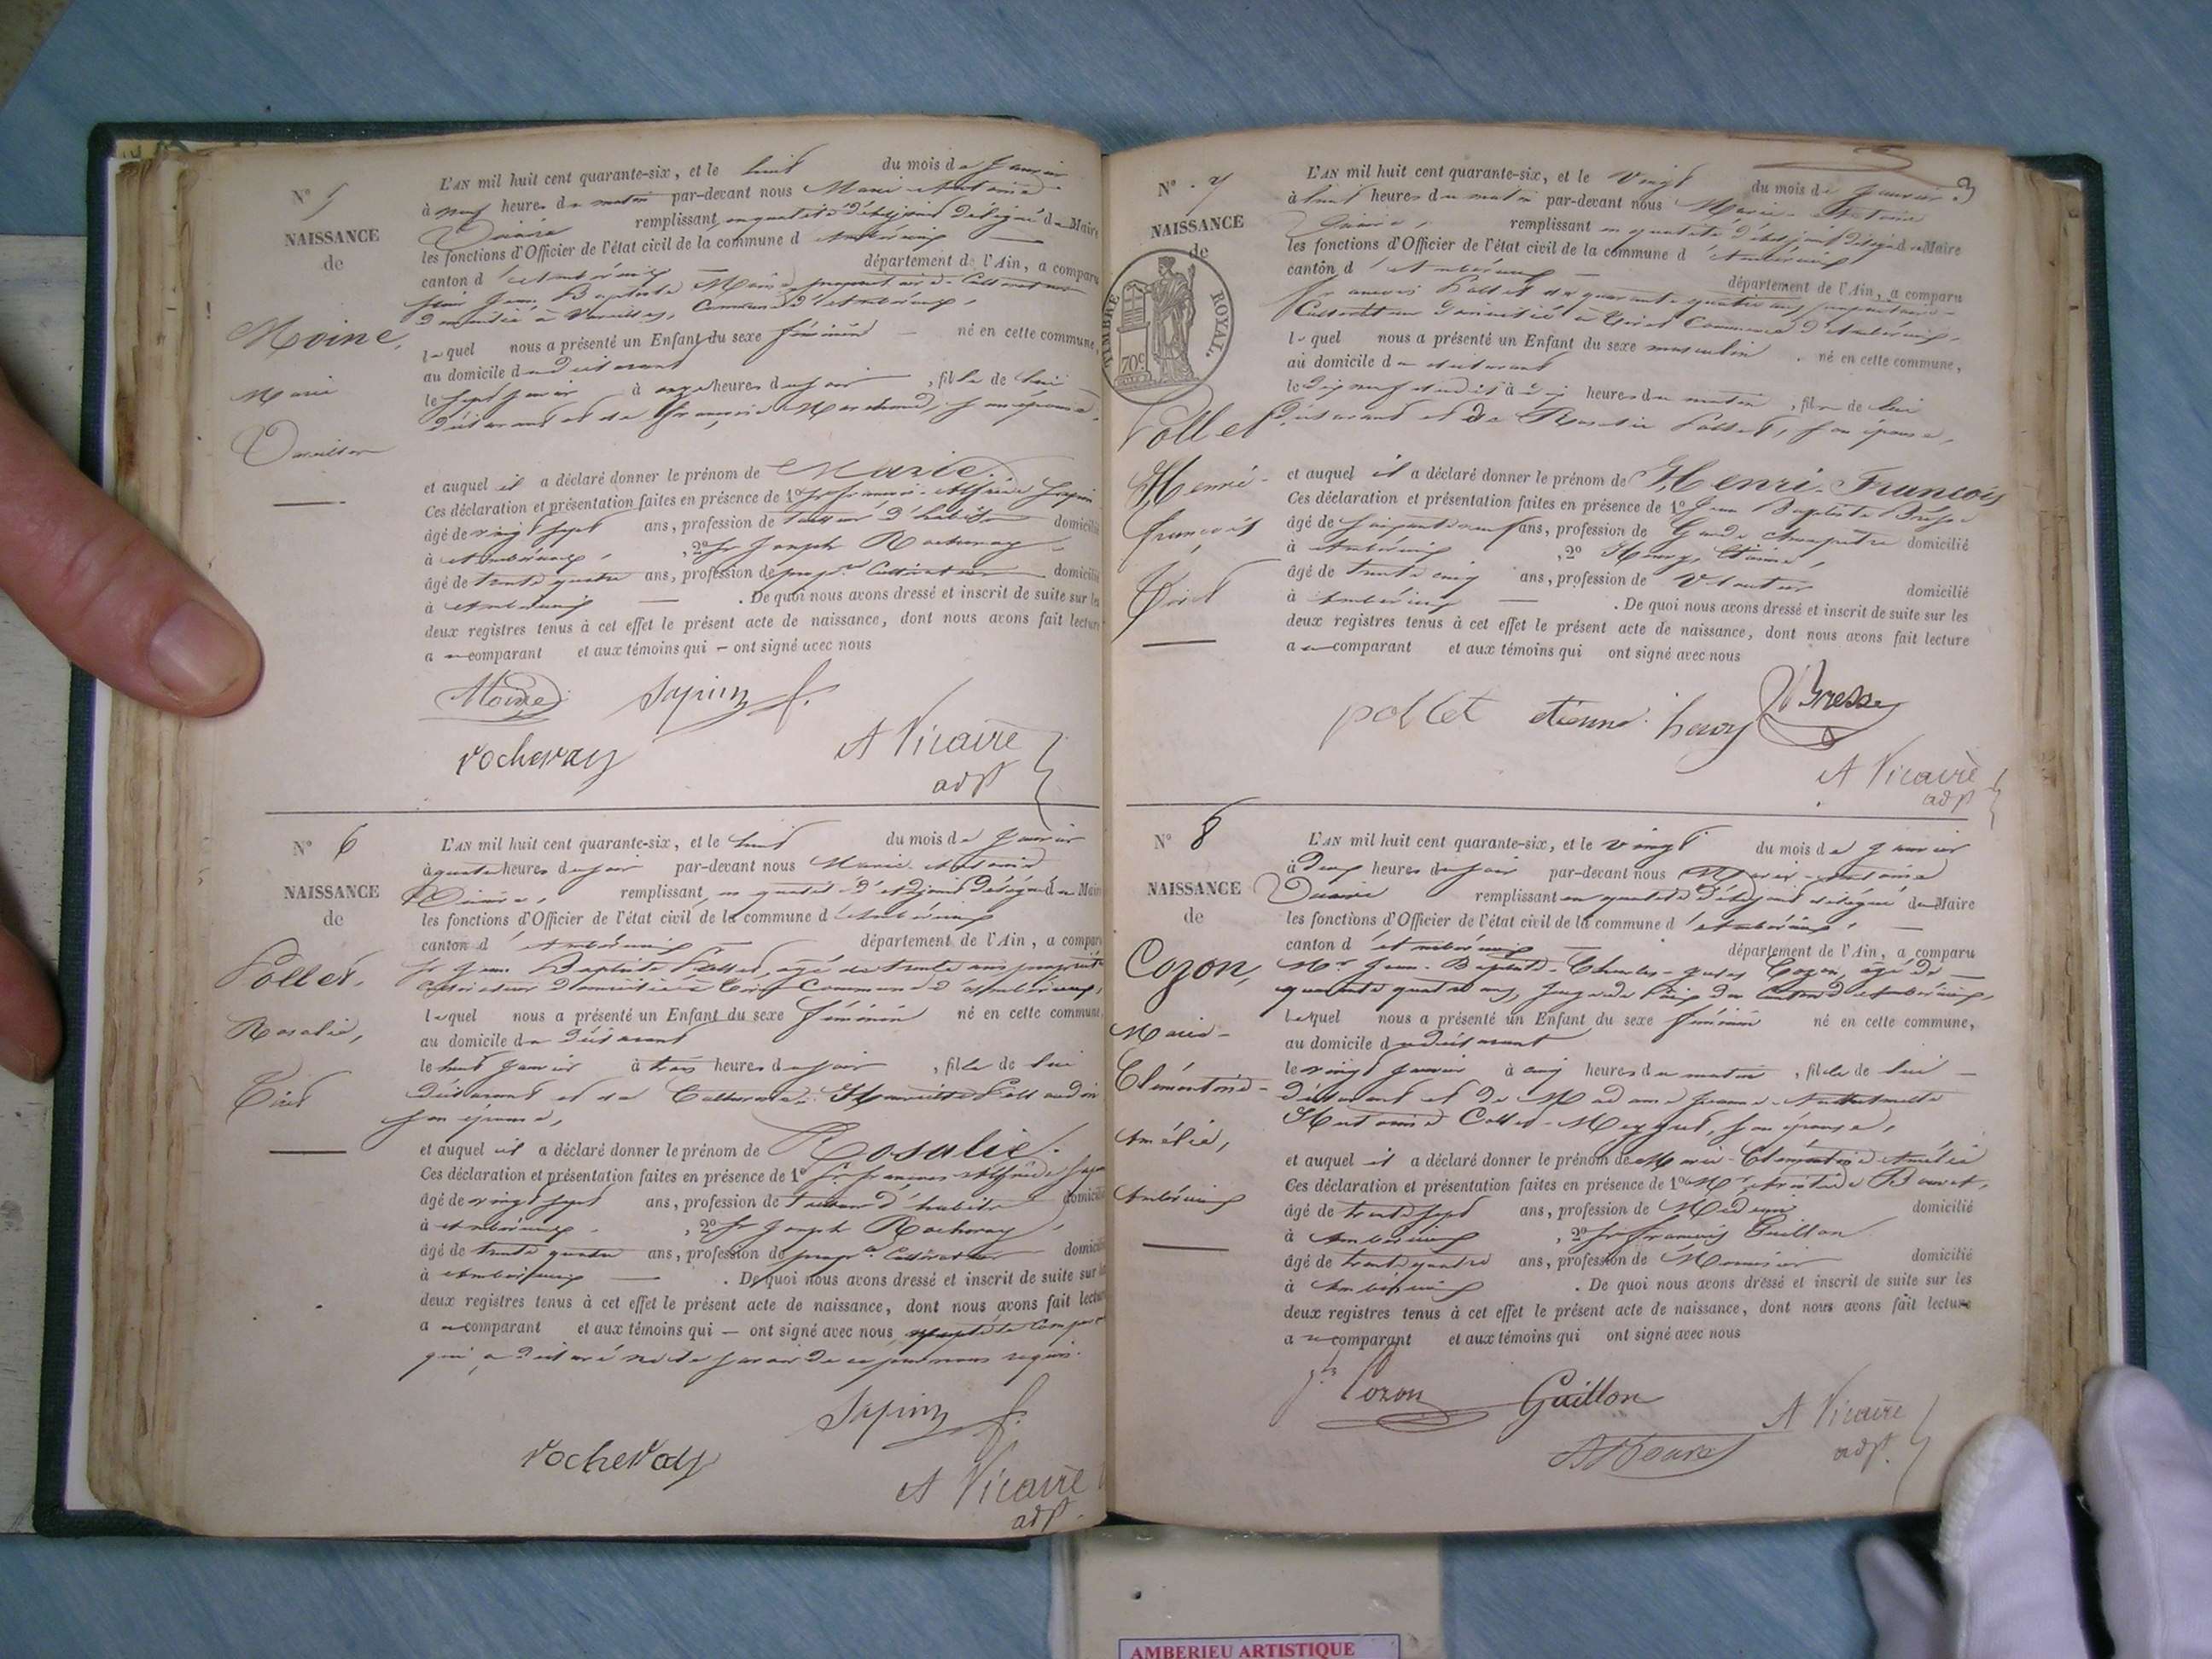 N° 5
NAISSANCE
de
Moine,
Marie
Vareilles
L'AN mil huit cent quarante-six, et le huit du mois de Janvier
à neuf heures du matin par-devant nous Marie Antoine
Vicaire remplissant en qualité d'adjoint délégué du Maire
les fonctions d'Officier de l'état civil de la commune d'Ambérieux
canton d'Ambérieux département de l'Ain, a comparu
Jean Baptiste Moine propriétaire Cultivateur
domicilié à Vareilles, Commune d'Ambérieux,
lequel nous a présenté un Enfant du sexe féminin né en cette commune,
au domicile du déclarant
le sept janvier à onze heures du soir, fille de lui
déclarant et de Marchand, son épouse.
et auquel il a déclaré donner le prénom de Marie.
Ces déclaration et présentation faites en présence de 1° Sr françois Alfred Sapin
âgé de vingt sept ans, profession de tailleur d'habits domicilié
à Ambérieux, 2° Sr Joseph Rochevay
âgé de trente quatre ans, profession de propre Cultivateur domicilié
à Ambérieux. De quoi nous avons dressé et inscrit de suite sur les
deux registres tenus à cet effet le présent acte de naissance, dont nous avons fait lecture
au comparant et aux témoins qui ont signé avec nous
Moine Sapin f.
rochevay A Vicaire
adjt
N° 6
NAISSANCE
de
Pollet,
Rosalie,
Tiret
L'AN mil huit cent quarante-six, et le huit du mois de Janvier
à quatre heures du soir par-devant nous Marie Antoine
Vicaire, remplissant en qualité d'adjoint délégué du Maire
les fonctions d'Officier de l'état civil de la commune d'Ambérieux
canton d'Ambérieux département de l'Ain, a comparu
Sr Jean Baptiste Pollet, âgé de trente ans propriét
Cultivateur domicilié à Tiret Commune d'Ambérieux,
lequel nous a présenté un Enfant du sexe féminin né en cette commune,
au domicile du déclarant
le huit janvier à trois heures du soir, fille de lui
déclarant et de Catherine Henriette
son épouse,
et auquel il a déclaré donner le prénom de Rosalie.
Ces déclaration et présentation faites en présence de 1° Sr françois Alfred Sapin
âgé de vingt sept ans, profession de tailleur d'habits domicilié
à Ambérieux, 2° Sr Joseph Rochevay,
âgé de trente quatre ans, profession de propre Cultivateur domicilié
à Ambérieux. De quoi nous avons dressé et inscrit de suite sur les
deux registres tenus à cet effet le présent acte de naissance, dont nous avons fait lecture
au comparant et aux témoins qui ont signé avec nous, excepté le Compart
qui a déclaré ne le savoir de ce par nous requis.
Sapin f.
rochevay
A Vicaire
adjt
3
N° 7
NAISSANCE
de
TIMBRE ROYAL.
70c
Pollet
Henri-
françois
Tiret
L'AN mil huit cent quarante-six, et le Vingt du mois de Janvier
à huit heures du matin par-devant nous Marie Antoine
Vicaire, remplissant en qualité d'adjoint délégué du Maire
les fonctions d'Officier de l'état civil de la commune d'Ambérieux
canton d'Ambérieux département de l'Ain, a comparu
Sr françois Pollet âgé de quarante quatre ans, propriétaire
Cultivateur domicilié à Tiret Commune d'Ambérieux,
lequel nous a présenté un Enfant du sexe masculin né en cette commune,
au domicile du déclarant
le dix neuf à heures du matin, fils de lui
déclarant et de Rosalie Pollet, son épouse,
et auquel il a déclaré donner le prénom de Henri-François
Ces déclaration et présentation faites en présence de 1° Jean Baptiste Bresse
âgé de ans, profession de Garde champêtre domicilié
à Ambérieux, 2° Henry Etienne,
âgé de trente cinq ans, profession de domicilié
à Ambérieux. De quoi nous avons dressé et inscrit de suite sur les
deux registres tenus à cet effet le présent acte de naissance, dont nous avons fait lecture
au comparant et aux témoins qui ont signé avec nous
pollet etienne henry Bresse
A Vicaire
adjt
N° 8
NAISSANCE
de
Cozon,
Marie-
Clémentine-
Amélie,
Ambérieux
L'AN mil huit cent quarante-six, et le vingt du mois de Janvier
à deux heures du soir par-devant nous Marie-antoine
Vicaire remplissant en qualité d'adjoint délégué du Maire
les fonctions d'Officier de l'état civil de la commune d'Ambérieux,
canton d'Ambérieux département de l'Ain, a comparu
Mr Jean-Baptiste-Charles-Jules Cozon, âgé de
quarante quatre ans, Juge de Paix du Canton d'Ambérieux,
lequel nous a présenté un Enfant du sexe féminin né en cette commune,
au domicile du déclarant
le vingt Janvier à cinq heures du matin, fille de lui
déclarant et de Madame Jeanne
Collet-Meygret, son épouse,
et auquel il a déclaré donner le prénom de Marie-Clémentine-Amélie
Ces déclaration et présentation faites en présence de 1° Mr Aristide Bouret,
âgé de trente sept ans, profession de Médecin domicilié
à Ambérieux, 2° Sr françois Guillon
âgé de trente quatre ans, profession de Menuisier domicilié
à Ambérieux. De quoi nous avons dressé et inscrit de suite sur les
deux registres tenus à cet effet le présent acte de naissance, dont nous avons fait lecture
au comparant et aux témoins qui ont signé avec nous
Jles Cozon Guillon
A Bouret A Vicaire
adjt.
AMBERIEU ARTISTIQUE